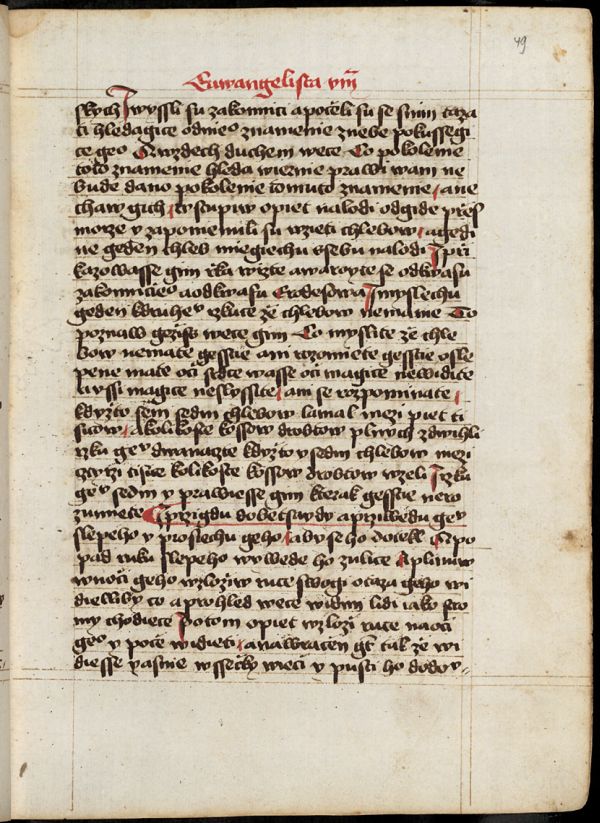 49
Euwangelista viii
skych J wyssli su zakonnici a poczeli su se snim taza
ti hledagice odnieo znamenie znebe pokussegi
ce geo Tzwzdech duchem wece Czo pokolenie
toto znamenie hleda wiernie prawi wam ne
bude dano pokolenie tomuto znamenie a ne
chaw gich wstupiw opiet nalodi odgide przes
morze y zapomenuli su wzieti chlebow a gedi
ne geden chleb miegiechu ssebu nalodi J przi
kazowasse gim rzka wizte a waruyte se odkwasu
zakonnicieo a odkwasu Erodesowa J myslechu
geden kdruhe rzkuce że chlebow nemame To
poznaw gezis wece gim Co myslite że chle
bow nemate gesstie ani rozomiete gesstie osle
pene mate oci srdce wasse oci magice newidite
a ussi magice neslyssite ani se rozpominate
kdyżto sem sedm chlebow lamal mezi piet ti
sicow A kolikoste kossow drobtow plnych zdwihli
rzku geu dwanadzte kdyżto y sedm chlebow mezi
cztyrzi tisice kolikoste kossow drobtow wzeli J rzku
geu sedm y prawiesse gim kterak gesstie nero
zumiete J przigdu dobetsaydy a prziwedu geu
slepeho y prosiechu geho aby se ho dotekl J po
pad ruku slepeho wywede ho zulice A plinuw
wnoci geho wzloziw ruce swogi otaza geho wi
dielliby co a prohled wece widim lidi iako stro
my chodiece Potom opiet wzlozi ruce naoci
geo y pocze widieti a nawracen gt tak że wi
diesse yasnie wssecky wieci y pusti ho dodou